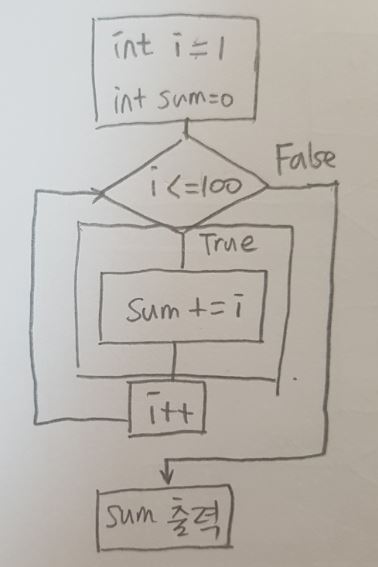 int i=1
int sum=0
i<=100
False
True
sum += i
i++
sum 출력